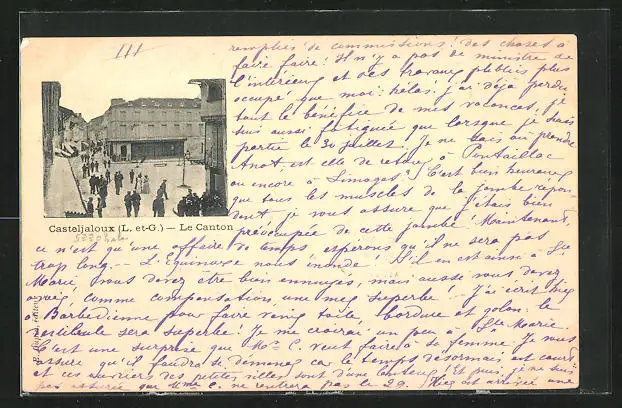 III
remplies de commissions! des choses à
faire faire! Il n'y a pas de ministre de
l'intérieur et des travaux publics plus
occupé que moi: hélas! j'ai déjà perdu
tout le bénéfice de mes vacances, je
suis aussi fatiguée que lorsque je suis
partie le 30 juillet! Je ne sais où prendre
Anat est elle de retour à Pontaillac
ou encore à Limoges? C'est bien heureux
que tous les muscles de la jambe répon-
dent je vous assure que j'étais bien
préoccupée de cette jambe! Maintenant,
Casteljaloux (L.-et-G.) — Le Canton
ce n'est qu'une affaire de temps espérons qu'il ne sera pas
trop long. L'Equinoxe nous inonde! S'il en est ainsi à Ste
Marie, vous devez être bien ennuyés, mais aussi vous devez
avoir, comme compensation, une mer superbe! J'ai écrit hier
à Barbedienne pour faire venir toile bordure et galon: le
vestibule sera superbe! Je me croirai un peu à Ste Marie.
C'est une surprise que Mr C. veut faire à sa femme. Je vous
assure qu'il faudra se démener car le temps désormais est court
et ces ouvriers des petites villes sont d'une lenteur! Et puis, je ne suis
pas assurée que Mme C. ne rentrera pas le 29. Hier est arrivée une